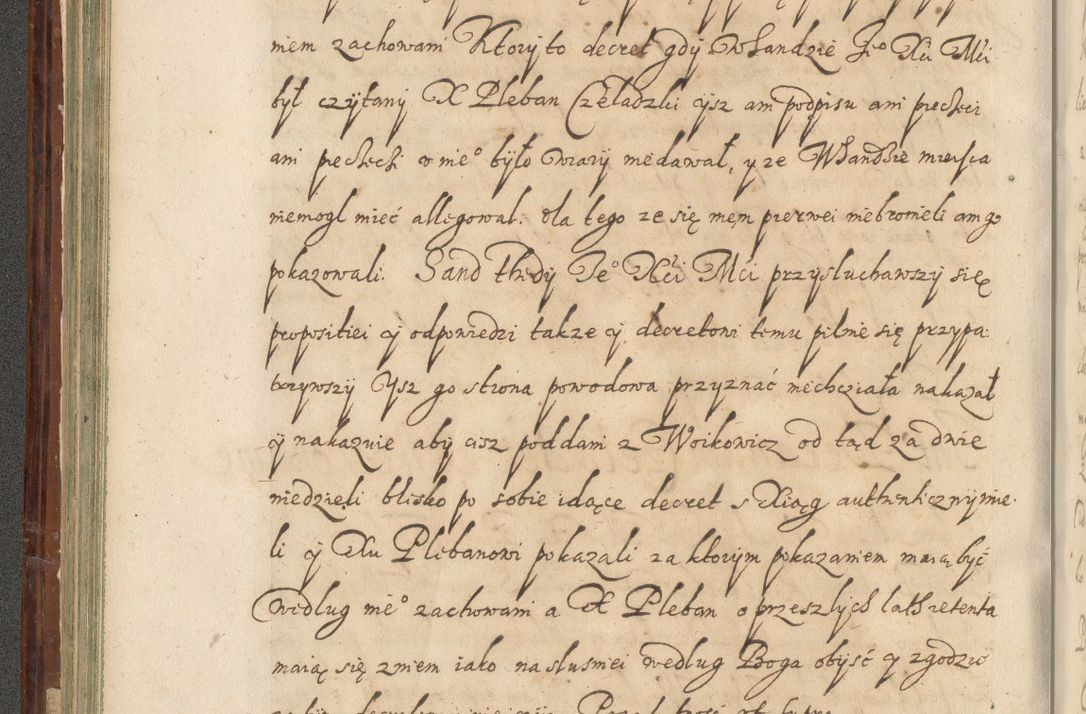 niem zachowani Ktory to decret gdy W Sandzie Je° Xci Mci
był czytany X Pleban Czeladzki ysz ani podpisu ani piecheci
ani piecheci w nie° było wiary niedawał, y ze W Sandzie mieisca
niemogl mieć allegował. dla tego ze się niem pierwei niebronieli ani go
pokazowali. Sand Thedy Je° Xci Mci przysluchawszy się
propositiei y odpowiedzi takze y decretowi temu pilnie się przypa:
trzywszy ysz go strona powodowa przyznać niechcziała nakazał
y nakazuie aby cisz poddani z Woikowicz od tąd za dwie
niedzieli blisko po sobie idące decret s Xiąg authenticzny mie:
li y Xu Plebanowi pokazali za ktorym pokazaniem maią być
według nie° zachowani a X Pleban o przeszlych lath retenta
maią się zniem iako naslusniei według Boga obyść y zgodzić